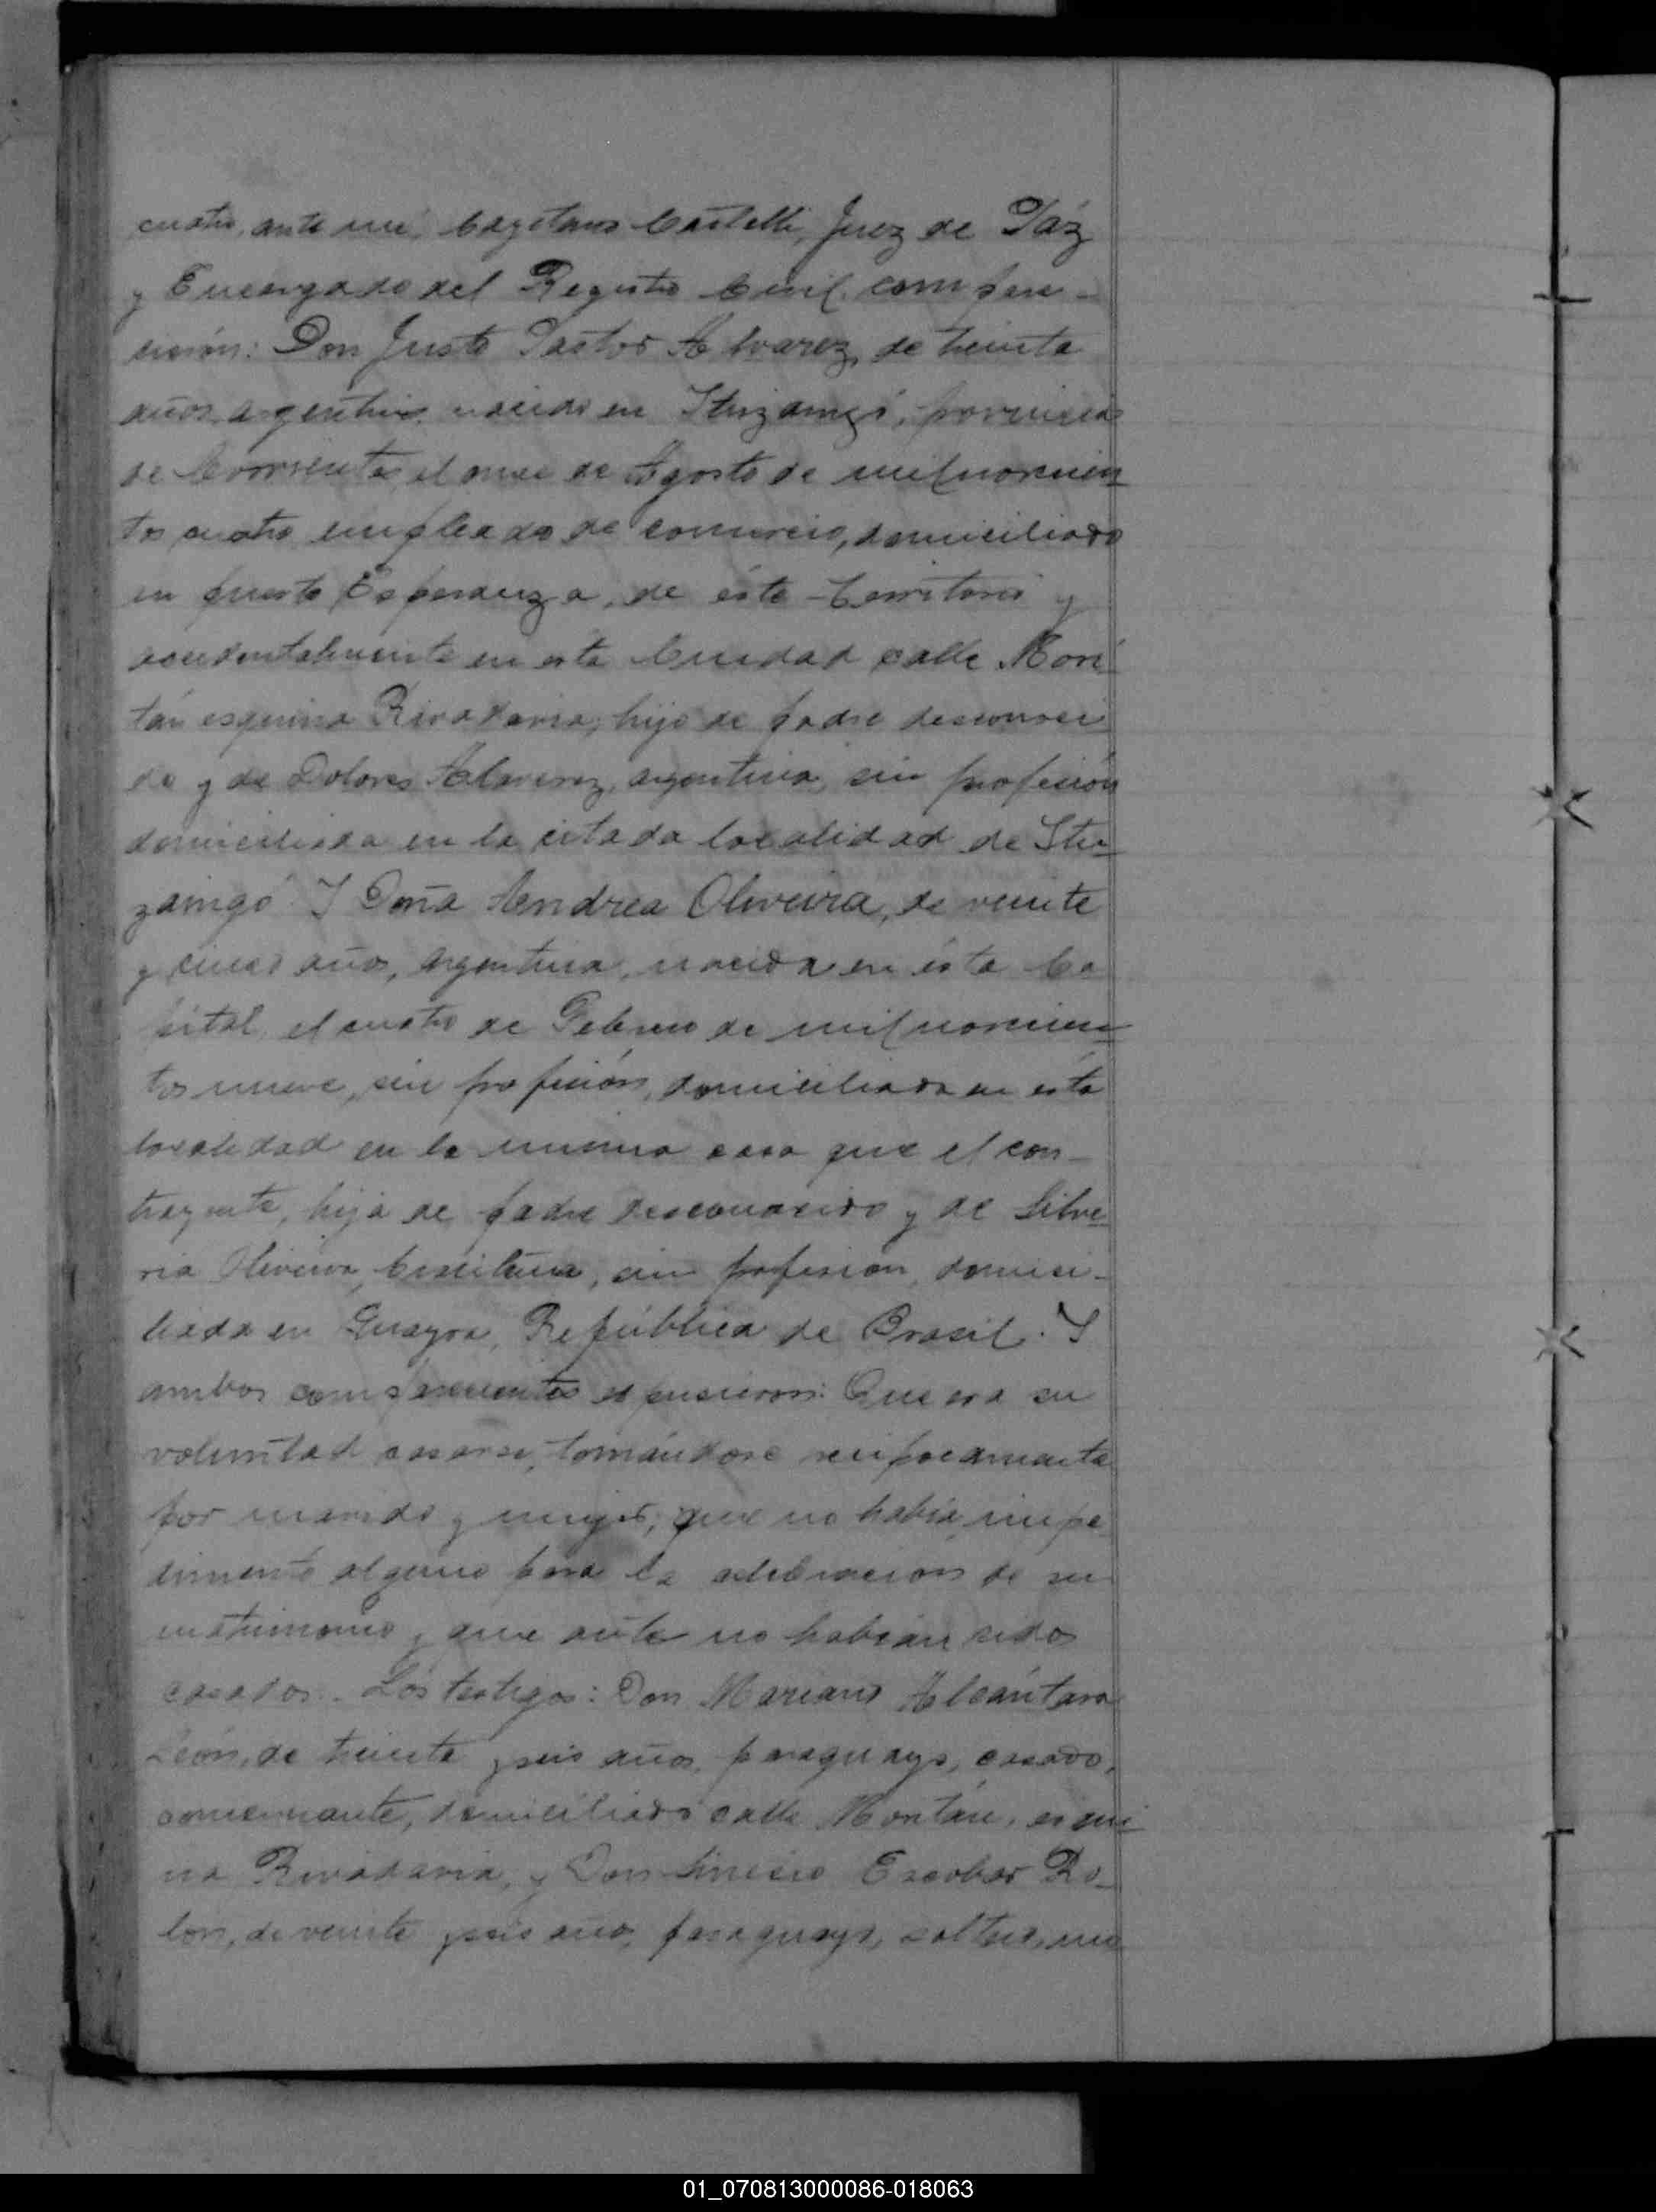 cuatro, ante mi, Cayetano Castelli, Juez de Páz
y Encargado del Registro Civil, compare-
cieron: Don Justo Pastor Alvarez, de treinta
años, argentino, nacido en Ituzaingó, provincia
de Corrientes, el once de Agosto de milnovecien
tos cuatro, empleado de comercio, domiciliado
en puerto Esperanza, de éste Territorio y
accidentalmente en esta Ciudad calle
esquina Rivadavia, hijo de padre desconoci
do y de Dolores Alvarez, argentina, sin profesión
domiciliada en la citada localidad de Itu
zaingó Y Doña Andrea Oliveira, de veinte
y cinco años, argentina, nacida en ésta Ca
pital, el cuatro de Febrero de milnovecien
tos nueve, sin profesión, domiciliada en esta
localidad en la misma casa que el con-
trayente, hija de padre desconocido y de Silve
ria Oliveira, brasileña, sin profesion, domici-
liada en Guayra, República de Brasil. Y
ambos comparecientes espusieron: Que era su
voluntad casarse, tomándose reciprocamente
por marido y mujer, que no había impe
dimento alguno para la celebración de su
matrimonio y que ante no habían sido
casados. Los testigos: Don Mariano Alcántara
León, de treinta y seis años, paraguayo, casado,
comerciante, domiciliado calle esqui
na Rivadavia, y Don Escobar Ro-
lon, de veinte y seis años, paraguayo, soltero,
01_070813000086-018063